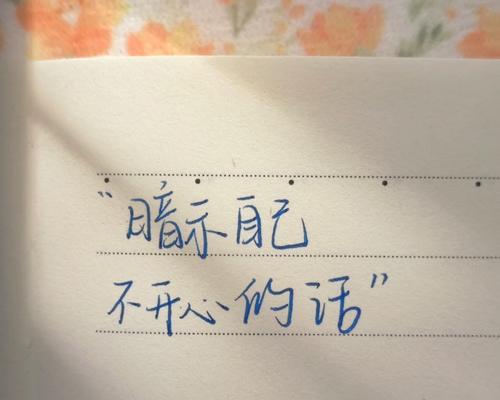 “暗示自己
不开心的话”